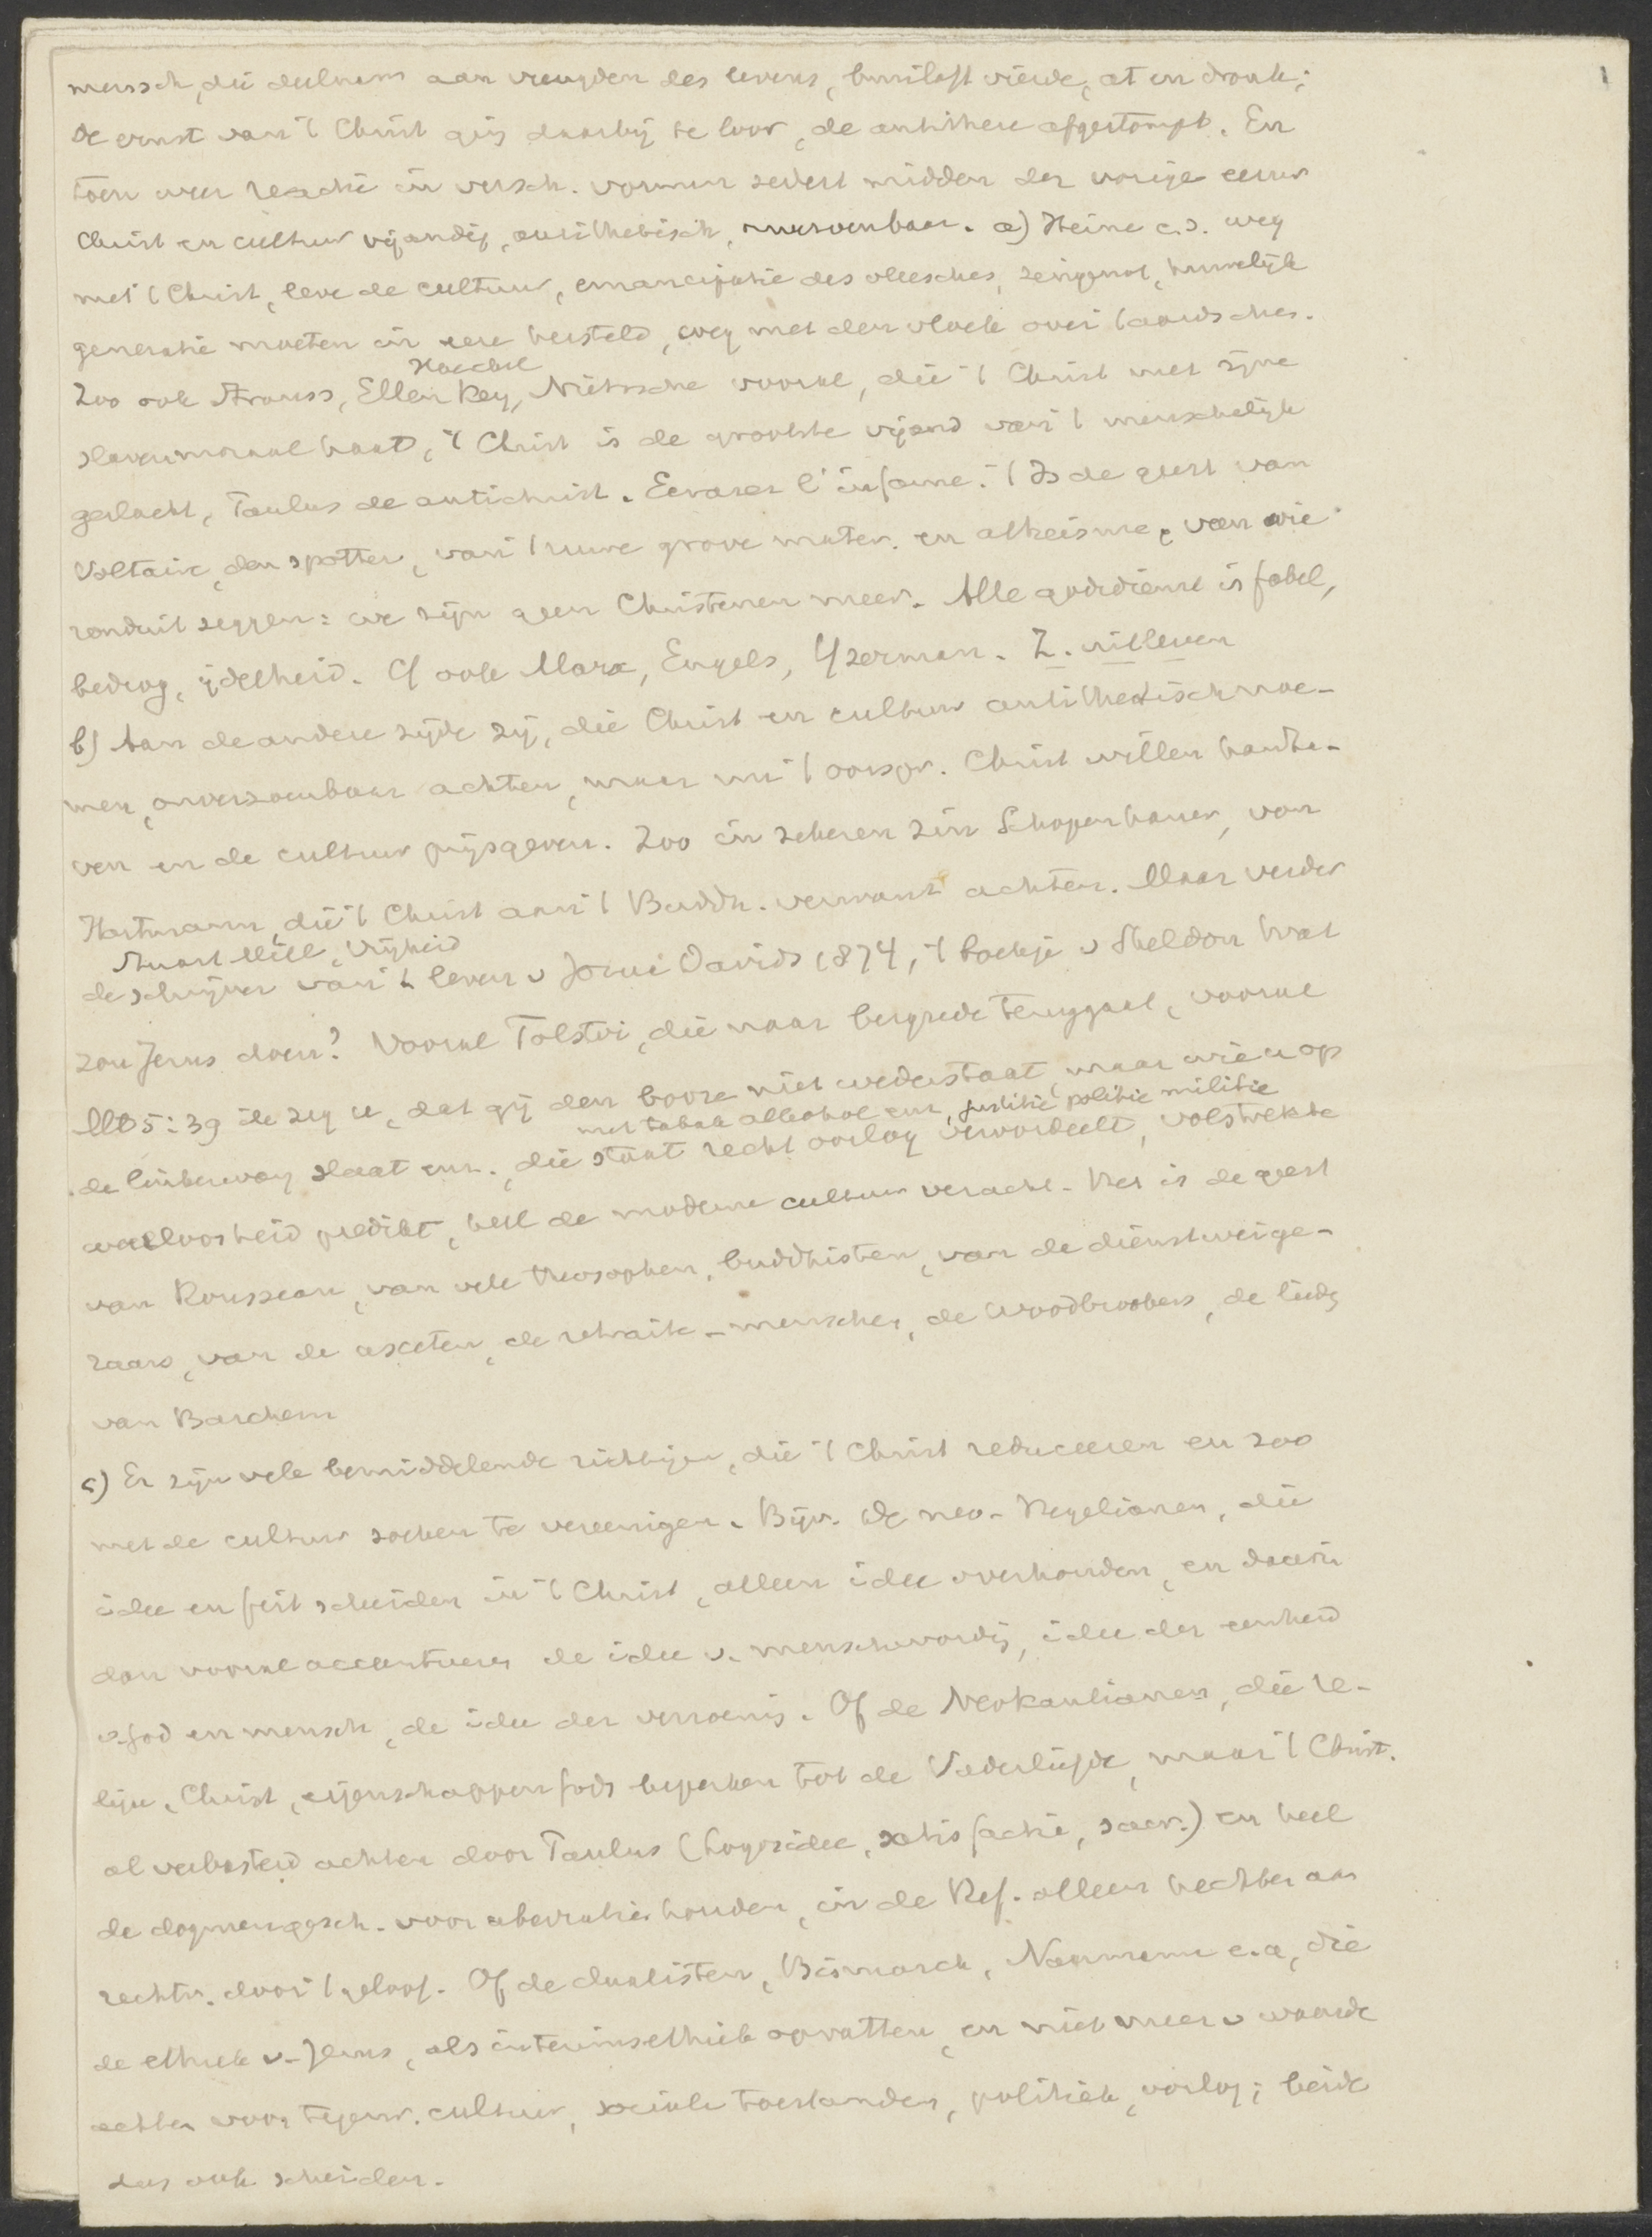 mensch, die deelnam aan vreugden des levens, bruiloft vierde, at en dronk;
de ernst van 't Christ ging daarbij te loor, de antithese afgestompt. En
toen weer reactie in versch. vormen sedert midden der vorige eeuw
Christ en cultuur vijandig, antithetisch, onverzoenbaar. a) Heine c.s. weg
met 't Christ, leve de cultuur, emancipatie des vleesches, zingenot, huwelijk
generatie moeten in eere hersteld, weg met den vloek over 't aardsche.
Haeckel
Zoo ook Strauss, Ellen Key, Nietzsche vooral, die 't Christ met zijne
slavenmoraal haat, 't Christ is de grootste vijand van 't menschelijk
geslacht, Paulus de antichrist. Ecrasez l'infame. 't Is de geest van
Voltaire, den spotter, van 't ruwe grove mater. en atheisme, van wie
ronduit zeggen: we zijn geen Christenen meer. Alle godsdienst is fabel,
bedrog, ijdelheid. Cf ook Marx, Engels, IJzerman. Z. uitleven
b) Aan de andere zijde zij, die Christ en cultuur antithetisch noe-
men, onverzoenbaar achten, maar nu 't oorspr. Christ willen handha-
ven en de cultuur prijsgeven. Zoo in zekeren zin Schopenhauer, von
Hartmann, die 't Christ aan 't Buddh. verwant achten. Maar verder
Stuart Mill, Vrijheid
de schrijver van 't leven v Josue Davids 1874, 't boekje v Sheldon Wat
zou Jezus doen? Vooral Tolstoi, die naar bergrede teruggaat, vooral
Mt 5:39 ik zeg u, dat gij den booze niet wederstaat, maar wie u op
met tabak alkohol enz, justitie politie militie
de linkerwang slaat enz. die staat recht oorlog veroordeelt, volstrekte
weerloosheid predikt, heel de moderne cultuur veracht. Het is de geest
van Rousseau, van vele theosophen, buddhisten, van de dienstweige-
raars, van de asceten, de retraite-menschen, de Woodbrookers, de liedn
van Barchem
c) Er zijn vele bemiddelende richtingen, die 't Christ reduceeren en zoo
met de cultuur zoeken te vereenigen. Bijv. de neo-Hegelianen, die
idee en feit scheiden in 't Christ, alleen idee overhouden, en daarin
dan vooral accentueren de idee v. menschwording, idee der eenheid
v. God en mensch, de idee der verzoening. Of de Neokantianen, die re-
ligie, Christ, eigenschappen Gods beperken tot de Vaderliefde, maar 't Christ.
al verbasterd achten door Paulus (Logosidee, satisfactie, sacr.) en heel
de dogmengesch. voor aberratie houden, in de Ref. alleen hechten aan
rechtv. door 't geloof. Of de dualisten, Bismarck, Naumann e.a, die
de ethiek v. Jezus, als interimsethiek opvatten, en niet meer v waarde
achten voor tegenw. cultuur, sociale toestanden, politiek, oorlog; beide
dus ook scheiden.